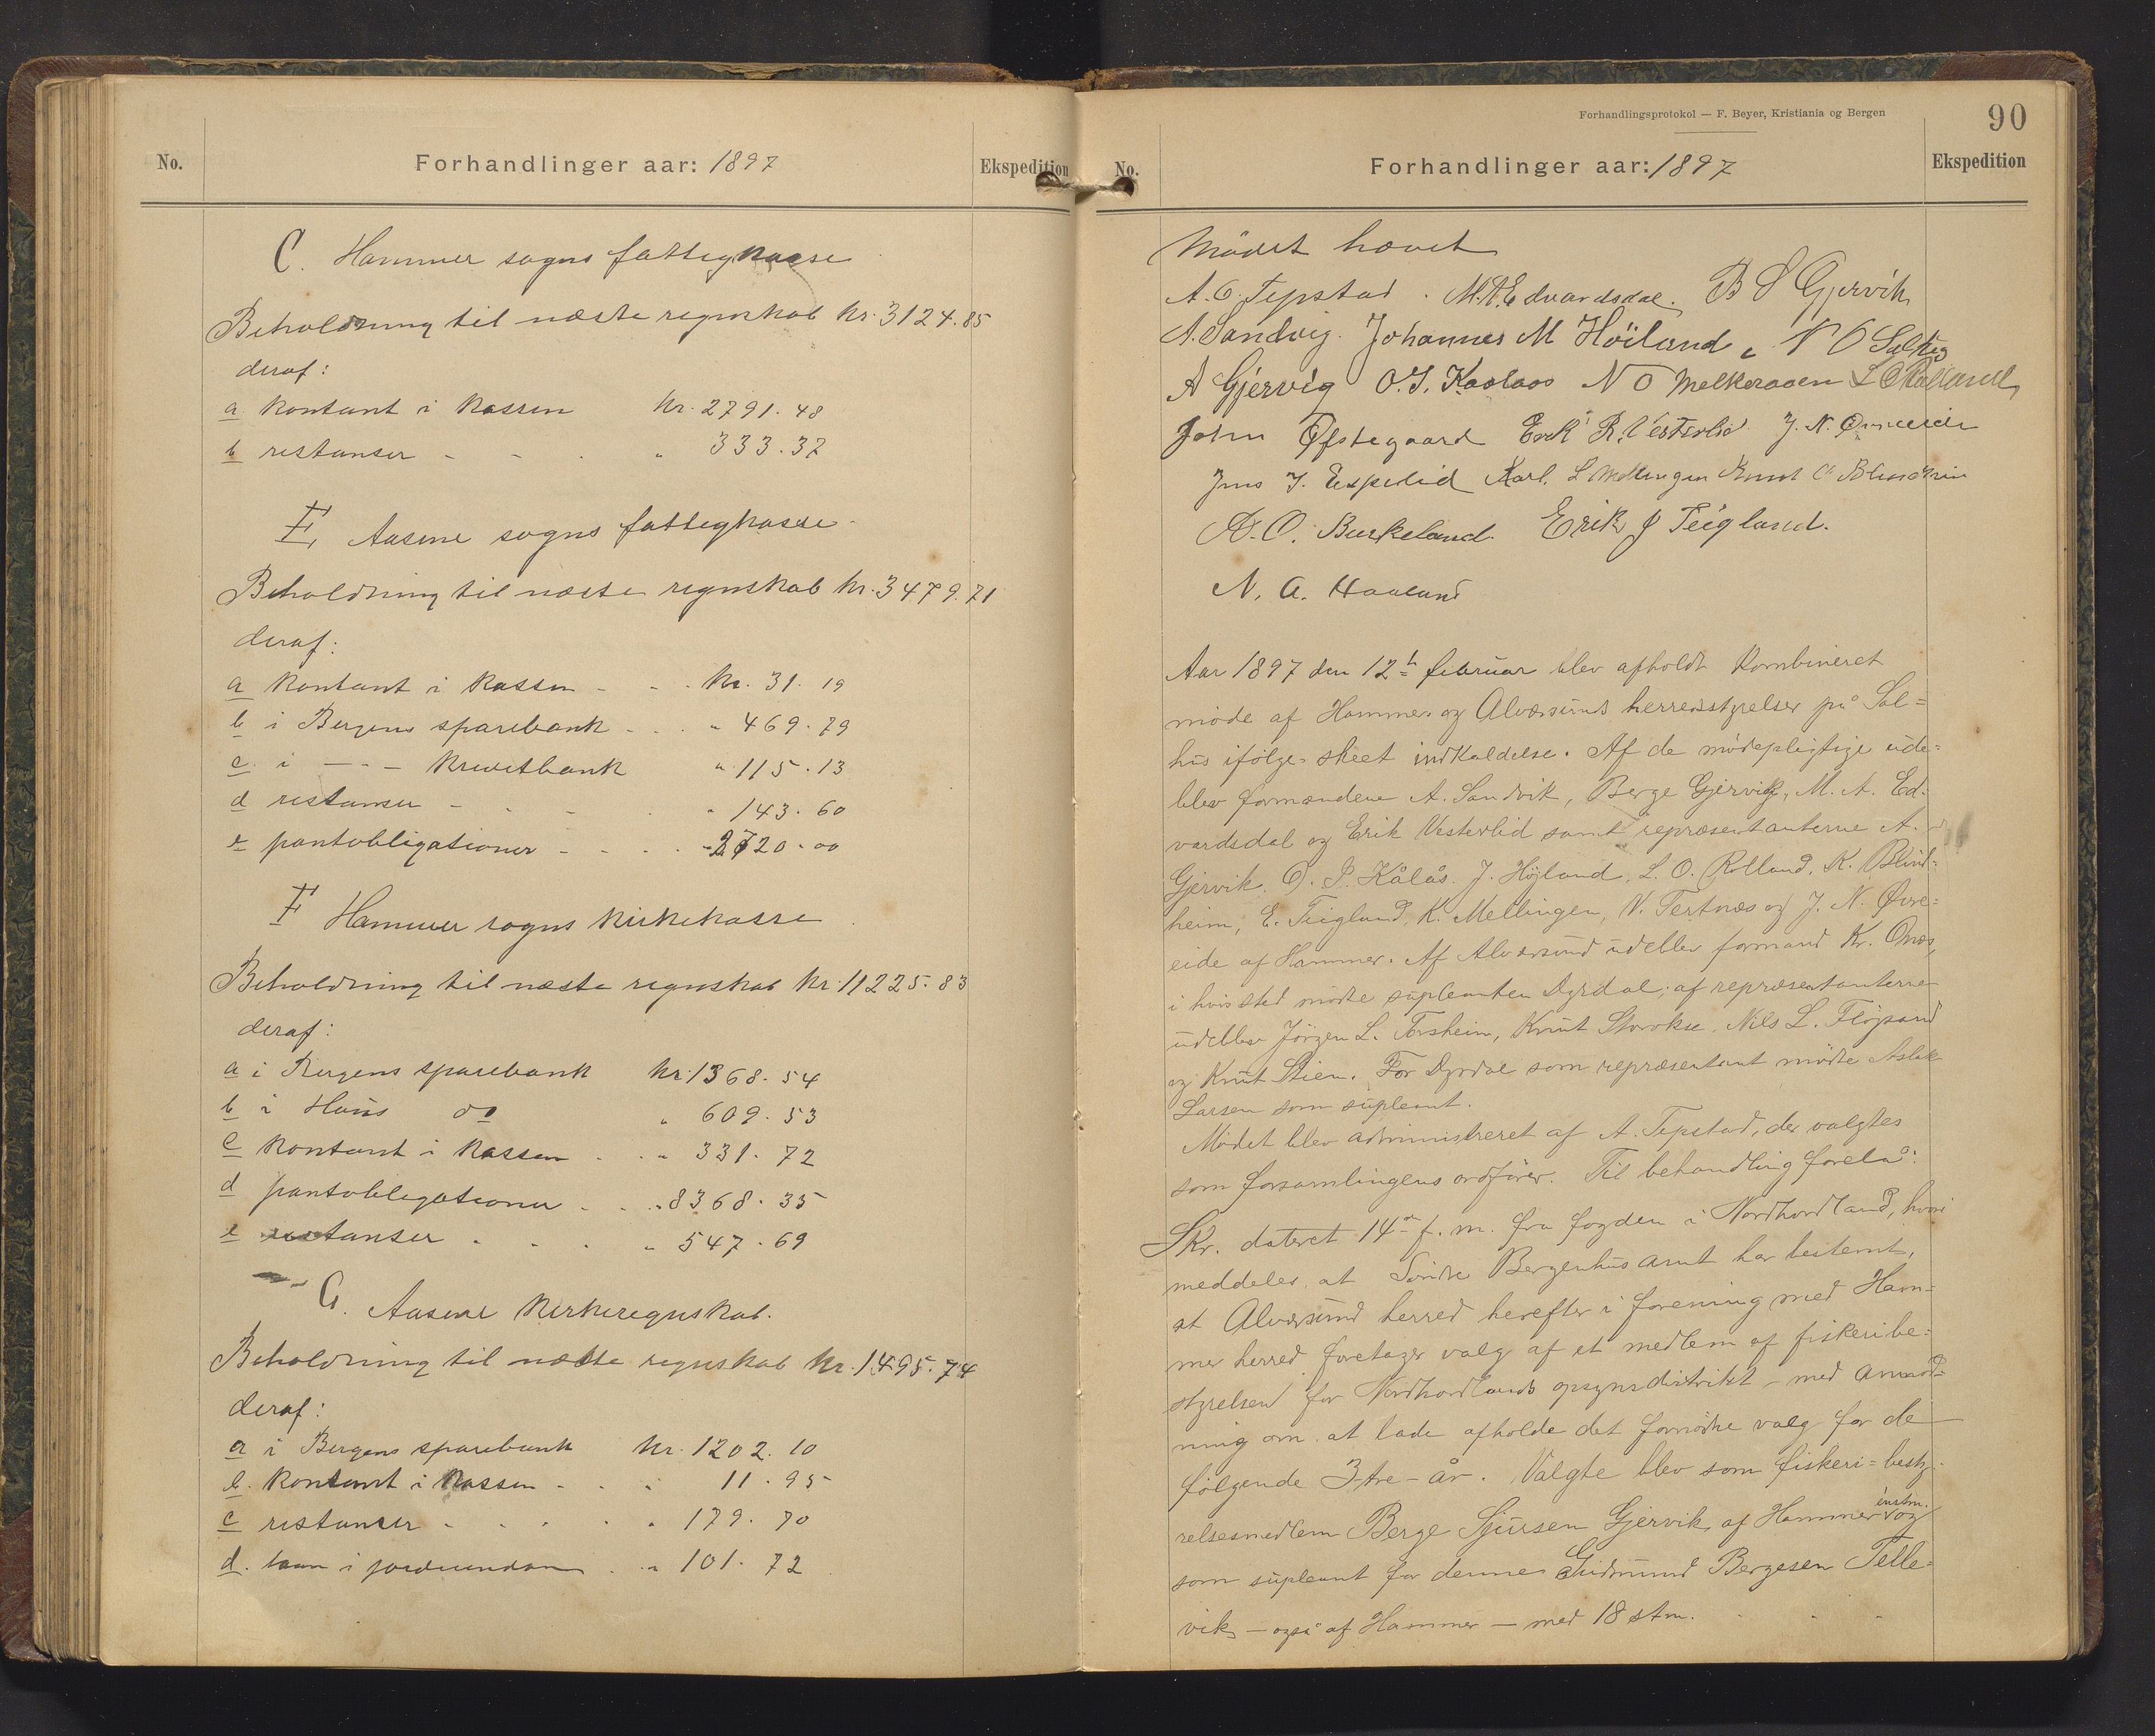 No.
Forhandlinger aar: 1897
Ekspedition
C. Hammer sogns fattigkasse
Beholdning til næste regnskab kr. 3124.85
deraf:
a kontant i kassen kr. 2791.48
b restanser - - - " 333.37
E, Aasene sogns fattigkasse
Beholdning til næste regnskab kr. 3479.71
deraf:
a kontant i kassen - - - kr. 31.19
b i Bergens sparebank - . . " 469.79
c i - " - Kreditbank " 115.13
d restanser - - - " 143.60
e pantobligationer - - - - 2720.00
F Hammer sogns kirkekasse
Beholdning til næste regnskab kr. 11225.83
deraf:
a i Bergens sparebank kr. 1368.54
b i Haus do " 609.53
c kontant i kassen . . " 331.72
d pantobligationer . . " 8368.35
e restanser - . . " 547.69
G. Aasene kirkeregnskab.
Beholdning til næste regnskab kr. 1495.74
deraf:
a i Bergens sparebank kr. 1202.10
b. kontant i kassen - . . 11.95
c restanser - . . . " 179.70
d. laan i . . " 101.72
Forhandlingsprotokol — F. Beyer, Kristiania og Bergen
90
No.
Forhandlinger aar: 1897
Ekspedition
Mödet hævet
A. O. Tepstad . M. A. Edvardsdal. B S Gjervik
A. Sandvig. Johannes M Höiland, N O
A Gjervig O. P. Kaalaas N O Melkeraaen L O Rolland
John Øfstegaard Erik R. Vesterlid J. N. Øvreeide
Jens J. Espelid Karl. L Mellingen Knut Blindheim
A. O. Burkeland. Erik J Teigland.
N. A. Haaland
Aar 1897 den 12te februar blev afholdt kombineret
möde af Hammer og Alversunds herredsstyrelser på Sal=
hus ifölge skeet indkaldelse. Af de mödepligtige ude=
blev formændene A. Sandvik, Berge Gjervik, M. A. Ed=
vardsdal og Erik Vesterlid samt repræsentanterne A.
Gjervik, O. P. Kålås, J. Höjland, L. O. Rolland, K. Blind=
heim, E. Teigland, K. Mellingen, N. Tertnæs og J. N. Øvre=
eide af Hammer. Af Alversund udeblev formand Kr. Onæs,
i hvis sted mödte suplanten Dyrdal; af repræsentanterne
udeblev Jörgen L. Forsheim, Knut Storokse, Nils L. Flöjsand
og Knut Stien. For Dyrdal som repræsentant mödte Aslak
Larsen som supleant.
Mödet blev administreret af A. Tepstad, der valgtes
som forsamlingens ordförer. Til behandling forelå:
Skr. dateret 14de f. m. fra fogden i Nordhordland, hvori
meddeles, at Söndre Bergenhus amt har bestemt,
at Alversund herred herefter i forening med Ham=
mer herred foretager valg af et medlem af fiskeribe=
styrelsen for Nordhordlands opsynsdistrikt - med anmod=
ning om at lade afholde det fornödne valg for de
fölgende 3-tre-år. Valgte blev som fiskeri=besty=
relsesmedlem Berge Sjursen Gjervik, af Hammer enstm. og
som supleant for denne Gudmund Bergesen Telle=
vik, - også af Hammer - med 18 stm.